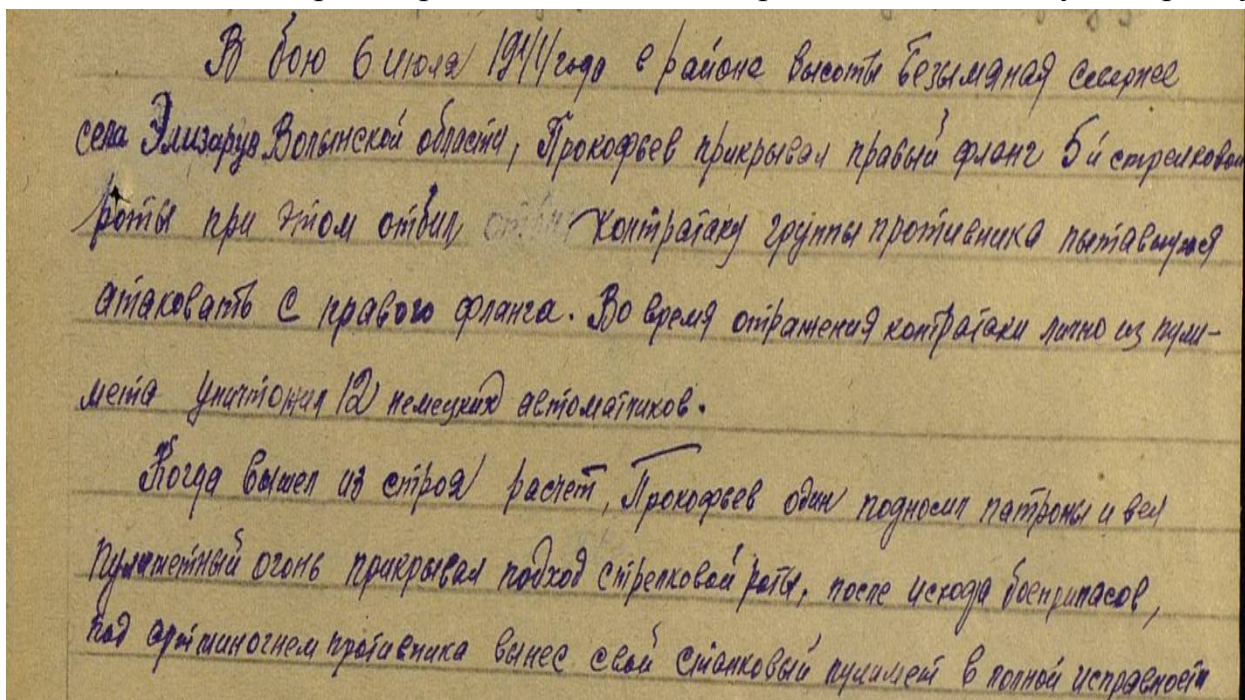 В бою 6 июля 1944 года в районе высоты Безымяная севернее
села Элизарув Волынской области, Прокофьев прикрывал правый фланг 5й стрелковой
роты при этом отбил контратаку группы противника пытавшуюся
атаковать с правого фланга. Во время отражения контратаки лично из пули-
мета уничтожил 12 немецких автоматчиков.
Когда вышел из строя расчет, Прокофьев один подносил патроны и вел
пулиметный огонь прикрывал подход стрелковой роты, после исхода боеприпасов,
под артминогнем противника вынес свой станковый пулимет в полной исправности